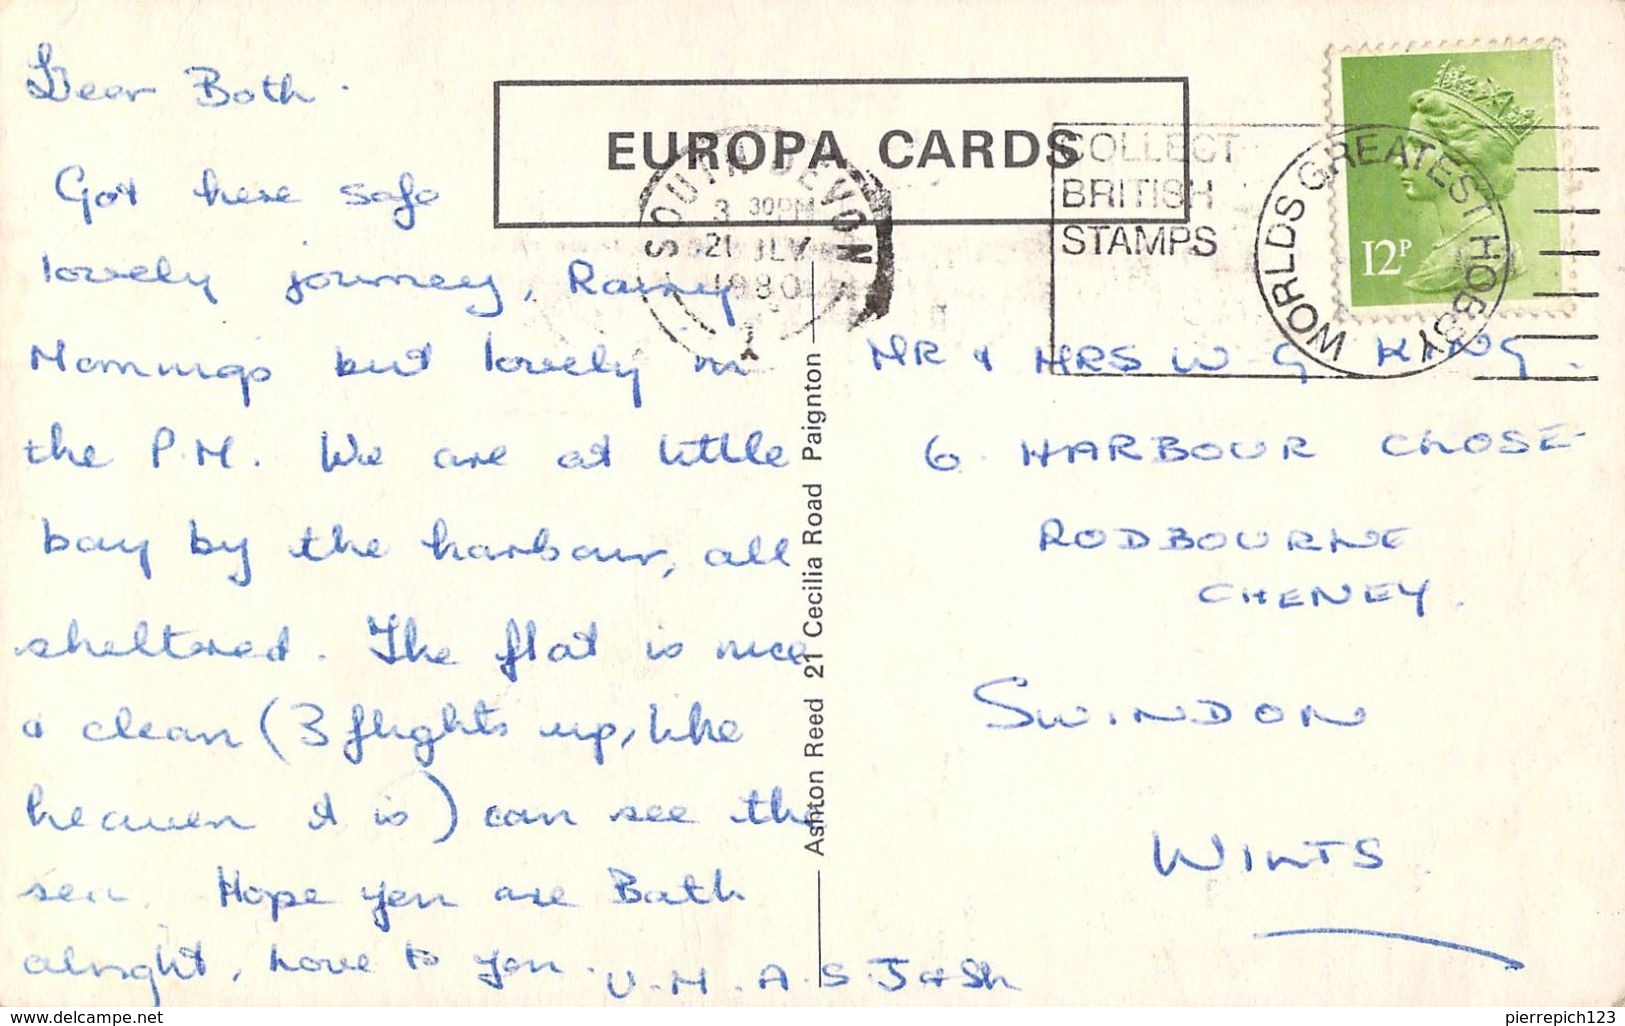 Dear Both.
Got here safe
lovely journey, Rainy
Mornings but lovely in
the P.M. We are at little
bay by the harbour, all
sheltered. The flat is nice
& clean (3 flights up, like
heaven it is) can see the
sea. Hope you are Both
alright, love to you.
U. M. A. S. J & Sh
EUROPA CARDS
SOUTH DEVON
3 30PM
21
1980
COLLECT
BRITISH
STAMPS
WORLDS GREATEST HOBBY
12P
Ashton Reed 21 Cecilia Road Paignton
MR & MRS W G KING.
6 HARBOUR CLOSE
RODBOURNE
CHENEY.
SWINDON
WILTS
www.delcampe.net
pierrepich123